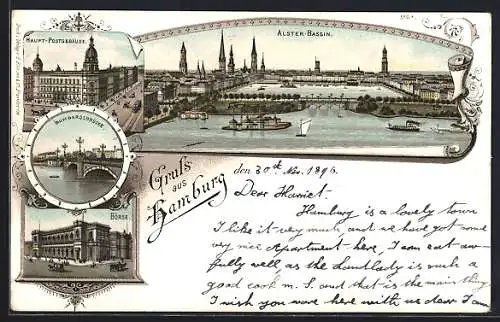 HAUPT-POSTGEBÄUDE.
ALSTER-BASSIN.
LOMBARDSBRÜCKE.
BÖRSE.
Gruss
aus
Hamburg
den 30st Nov. 1896.
Dear Harriet.
Hamburg is a lovely town
I like it very much, and we have got some
very nice Apartment here, I am eat aw-
fully well as the Landlady is such a
good cook and that is the main thing
I wish you were here with us dear I am